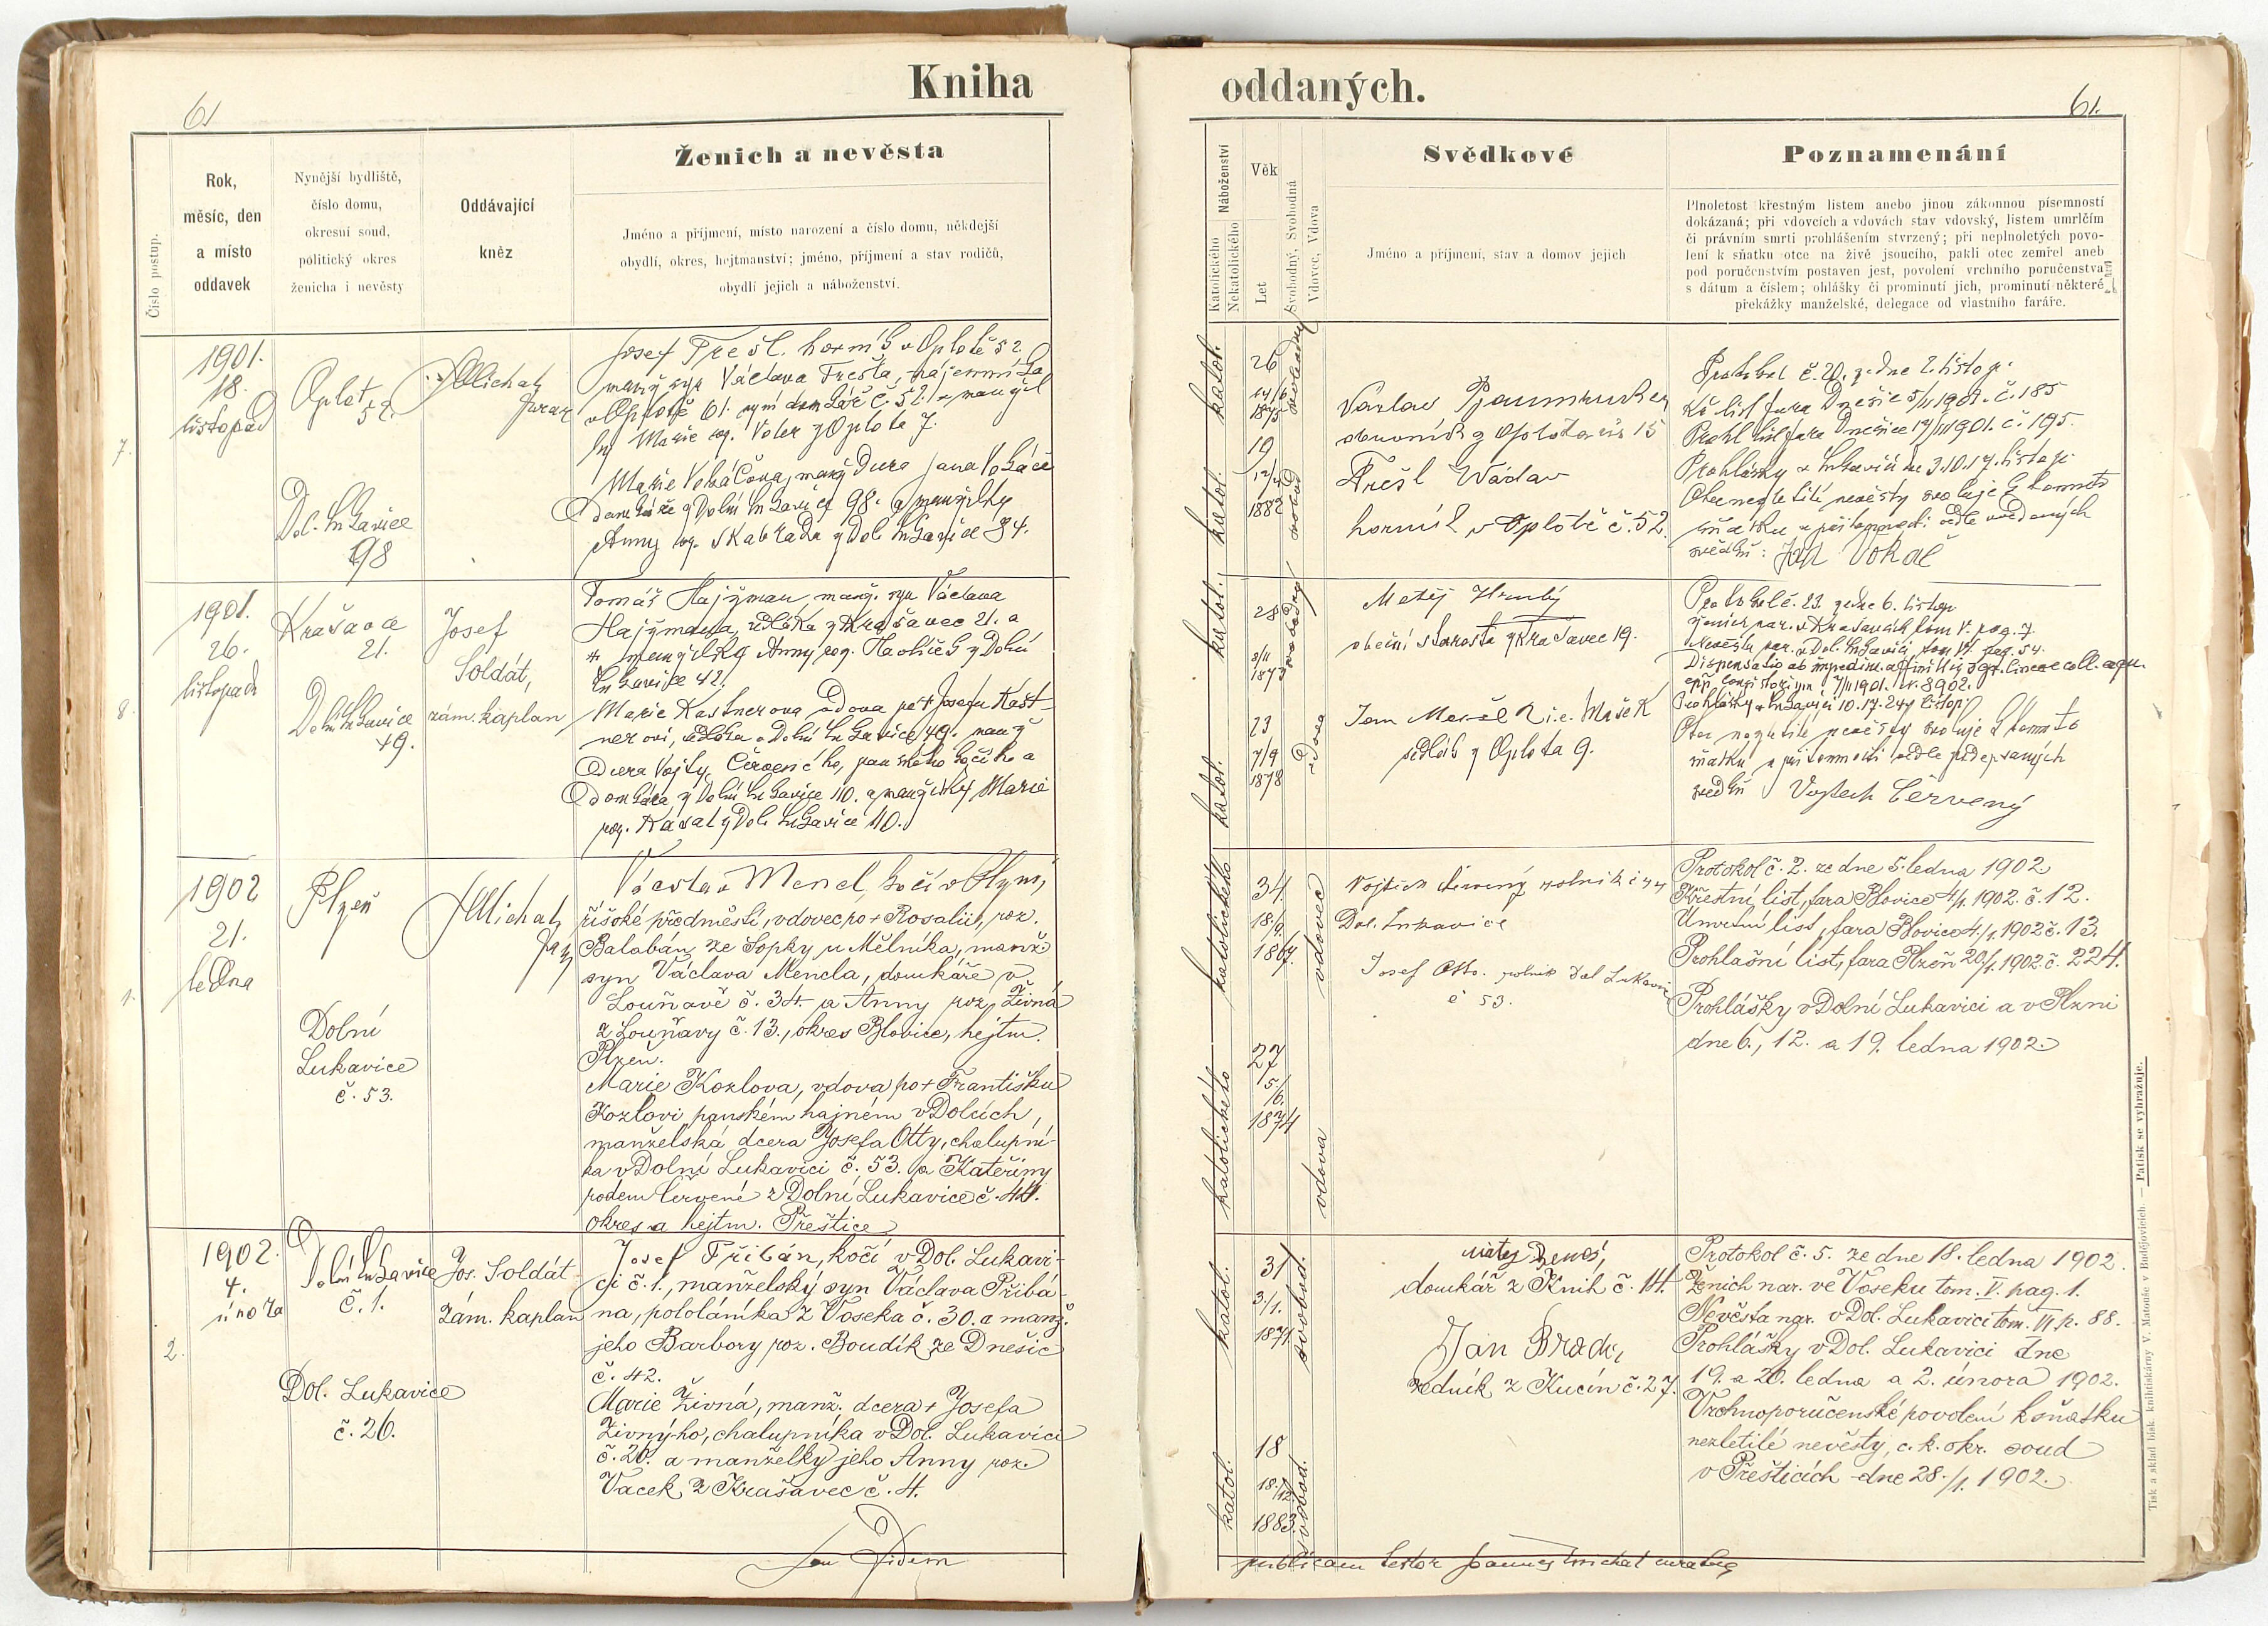 Kniha
oddaných.
61
61.
Číslo postup.
Rok,
měsíc, den
a místo
oddavek
Nynější bydliště,
číslo domu,
okresní soud,
politický okres
ženicha i nevěsty
Oddávající
kněz
Ženich a nevěsta
Jméno a příjmení, místo narození a číslo domu, někdejší
obydlí, okres, hejtmanství; jméno, příjmení a stav rodičů,
obydlí jejich a náboženství.
Náboženství
Katolického
Nekatolického
Věk
Let
Svobodný, Svobodná
Vdovec, Vdova
Svědkové
Jméno a příjmení, stav a domov jejich
Poznamenání
Plnoletost křestným listem anebo jinou zákonnou písemností
dokázaná; při vdovcích a vdovách stav vdovský, listem umrlčím
či právním smrti prohlášením stvrzený; při neplnoletých povo-
lení k sňatku otce na živě jsoucího, pakli otec zemřel aneb
pod poručenstvím postaven jest, povolení vrchního poručenstva
s dátum a číslem; ohlášky či prominutí jich, prominutí některé
překážky manželské, delegace od vlastního faráře.
7.
1901.
18.
listopad
Oplot
52.
Dol. Lukavice
98
J. Michal
farar
Josef Trešl. horník v Oplotě 52.
manž syn Václava Trešla, nájemníka
v Oplotě 61. nyní domkář č. 52. a manžel
ky Marie roz. Voler z Oplota 7.
Marie Vokáčova, manž dcera Jana Vokáče
domkáře z Dolní Lukavice 98. a manželky
Anny roz. Skabrada z Dol Lukavice 84.
katol.
katol.
26
14/6
1875
svobodný
19
12/4
1882
svobod
Václav
z Oplota čís 15
Trešl Václav
horník v Oplotě č. 52.
Protokol č. 20. ze dne 2. listop.
Kř list fara Dnešice 5/11 1901. č. 185
Prohl list fara Dnešice 17/11 1901. č. 195.
Prohlášky v Lukavici dne 3. 10. 17. listop.
Otec nezletilé nevěsty svoluje k tomuto
sňatku v přítomnosti vedle uvedených
svědků: Jan Vokáč
8.
1901.
26.
listopadu
Krašavce
21.
Dolní Lukavice
49.
Josef
Soldát,
zám. kaplan
Tomáš Hajžman, manž. syn Václava
Hajžmana, sedláka z Krašavec 21. a
manželky Anny roz. Havlíček z Dolní
Lukavice 42.
Marie Kastnerova vdova po + Josefu Kast-
nerovi, sedláka v Dolní Lukavice 49. manž
dcera Vojty Červeného, panského kočího a
domkáře z Dolní Lukavice 110. a manželky Marie
roz. Kasal z Dol. Lukavice 110.
katol.
katol.
28
3/11
1873
svobodný
23
7/9
1878
vdova
Matěj Hrubý
obecní starosta z Krašavec 19.
Jan i.e. Mašek
sedlák z Oplota 9.
Protokol č. 23. ze dne 6. listop
Ženich nar. v Krašavcích tom V. pag. 7.
Nevěsta nar. v Dol. Lukavici tom VI. pag. 54.
Dispensatio ab impedim. affinitis lineae coll. aequ.
7/11 1901. N. 8902.
Prohlášky v Lukavici 10. 17. 24 listop
Otec nezletilé nevěsty svoluje k tomuto
sňatku v přítomnosti vedle podepsaných
svědků Vojtech Červený
1.
1902
21.
ledna
Plzeň
Dolní
Lukavice
č. 53.
J. Michal
farář
Václav Mencl, kočí v Plzni,
říšské předměstí, vdovec po + Rosalii, roz.
Balabán ze Šopky u Mělníka, manž.
syn Václava Mencla, domkáře v
Louňavě č. 34. a Anny roz. Živná
z Louňavy č. 13., okres Blovice, hejtm.
Plzeň.
Marie Kozlova, vdova po + Františku
Kozlovi, panském hajném v Dolcích,
manželská dcera Josefa Otty, chalupní-
ka v Dolní Lukavici č. 53. a Kateřiny
rodem Červené z Dolní Lukavice č. 44.
okres a hejtm. Přeštice
katolického
katolického
34.
18/9.
1867.
vdovec
27
5./
6.
1874
vdova
Vojtěch Červený rolník č 44
Dol. Lukavice
Josef Otto. rolník Dol Lukavice
č 53.
Protokol č. 2. ze dne 5. ledna 1902
Křestní list, fara Blovice 4/1. 1902. č. 12.
Úmrtní list, fara Blovice 4/1. 1902 č. 13.
Prohlašní list, fara Plzeň 20/1. 1902. č. 224.
Prohlášky v Dolní Lukavici a v Plzni
dne 6., 12. a 19. ledna 1902.
2.
1902.
4.
února
Dolní Lukavice
č. 1.
Dol. Lukavice
č. 26.
Jos. Soldát
zám. kaplan
Josef Přibán, kočí v Dol. Lukavi-
ci č. 1., manželský syn Václava Přibá-
na, pololáníka z Voseka č. 30. a manž.
jeho Barbory roz. Boudík ze Dnešic
č. 42.
Marie Živná, manž. dcera + Josefa
Živný-ho, chalupníka v Dol. Lukavici
č. 20. a manželky jeho Anny roz.
Vacek z Krašavec č. 4.
katol.
katol.
31
3/1.
1871.
svobod.
18
18./12.
1883.
svobod.
Matěj Beneš,
domkář z Knih č. 14.
Jan Brada,
zedník z Kucín č. 27.
Protokol č. 5. ze dne 18. ledna 1902.
Ženich nar. ve Voseku tom. V. pag. 1.
Nevěsta nar. v Dol. Lukavici tom. VI. p. 88.
Prohlášky v Dol. Lukavici dne
19. a 26. ledna a 2. února 1902.
Vrchnoporučenské povolení k sňatku
nezletilé nevěsty, c. k. okr. soud
v Přešticích dne 28./1. 1902.
fidem
publicam testor Joannes Michal
Tisk a sklad bisk. knihtiskárny V. Matouše v Budějovicích. — Patisk se vyhražuje.